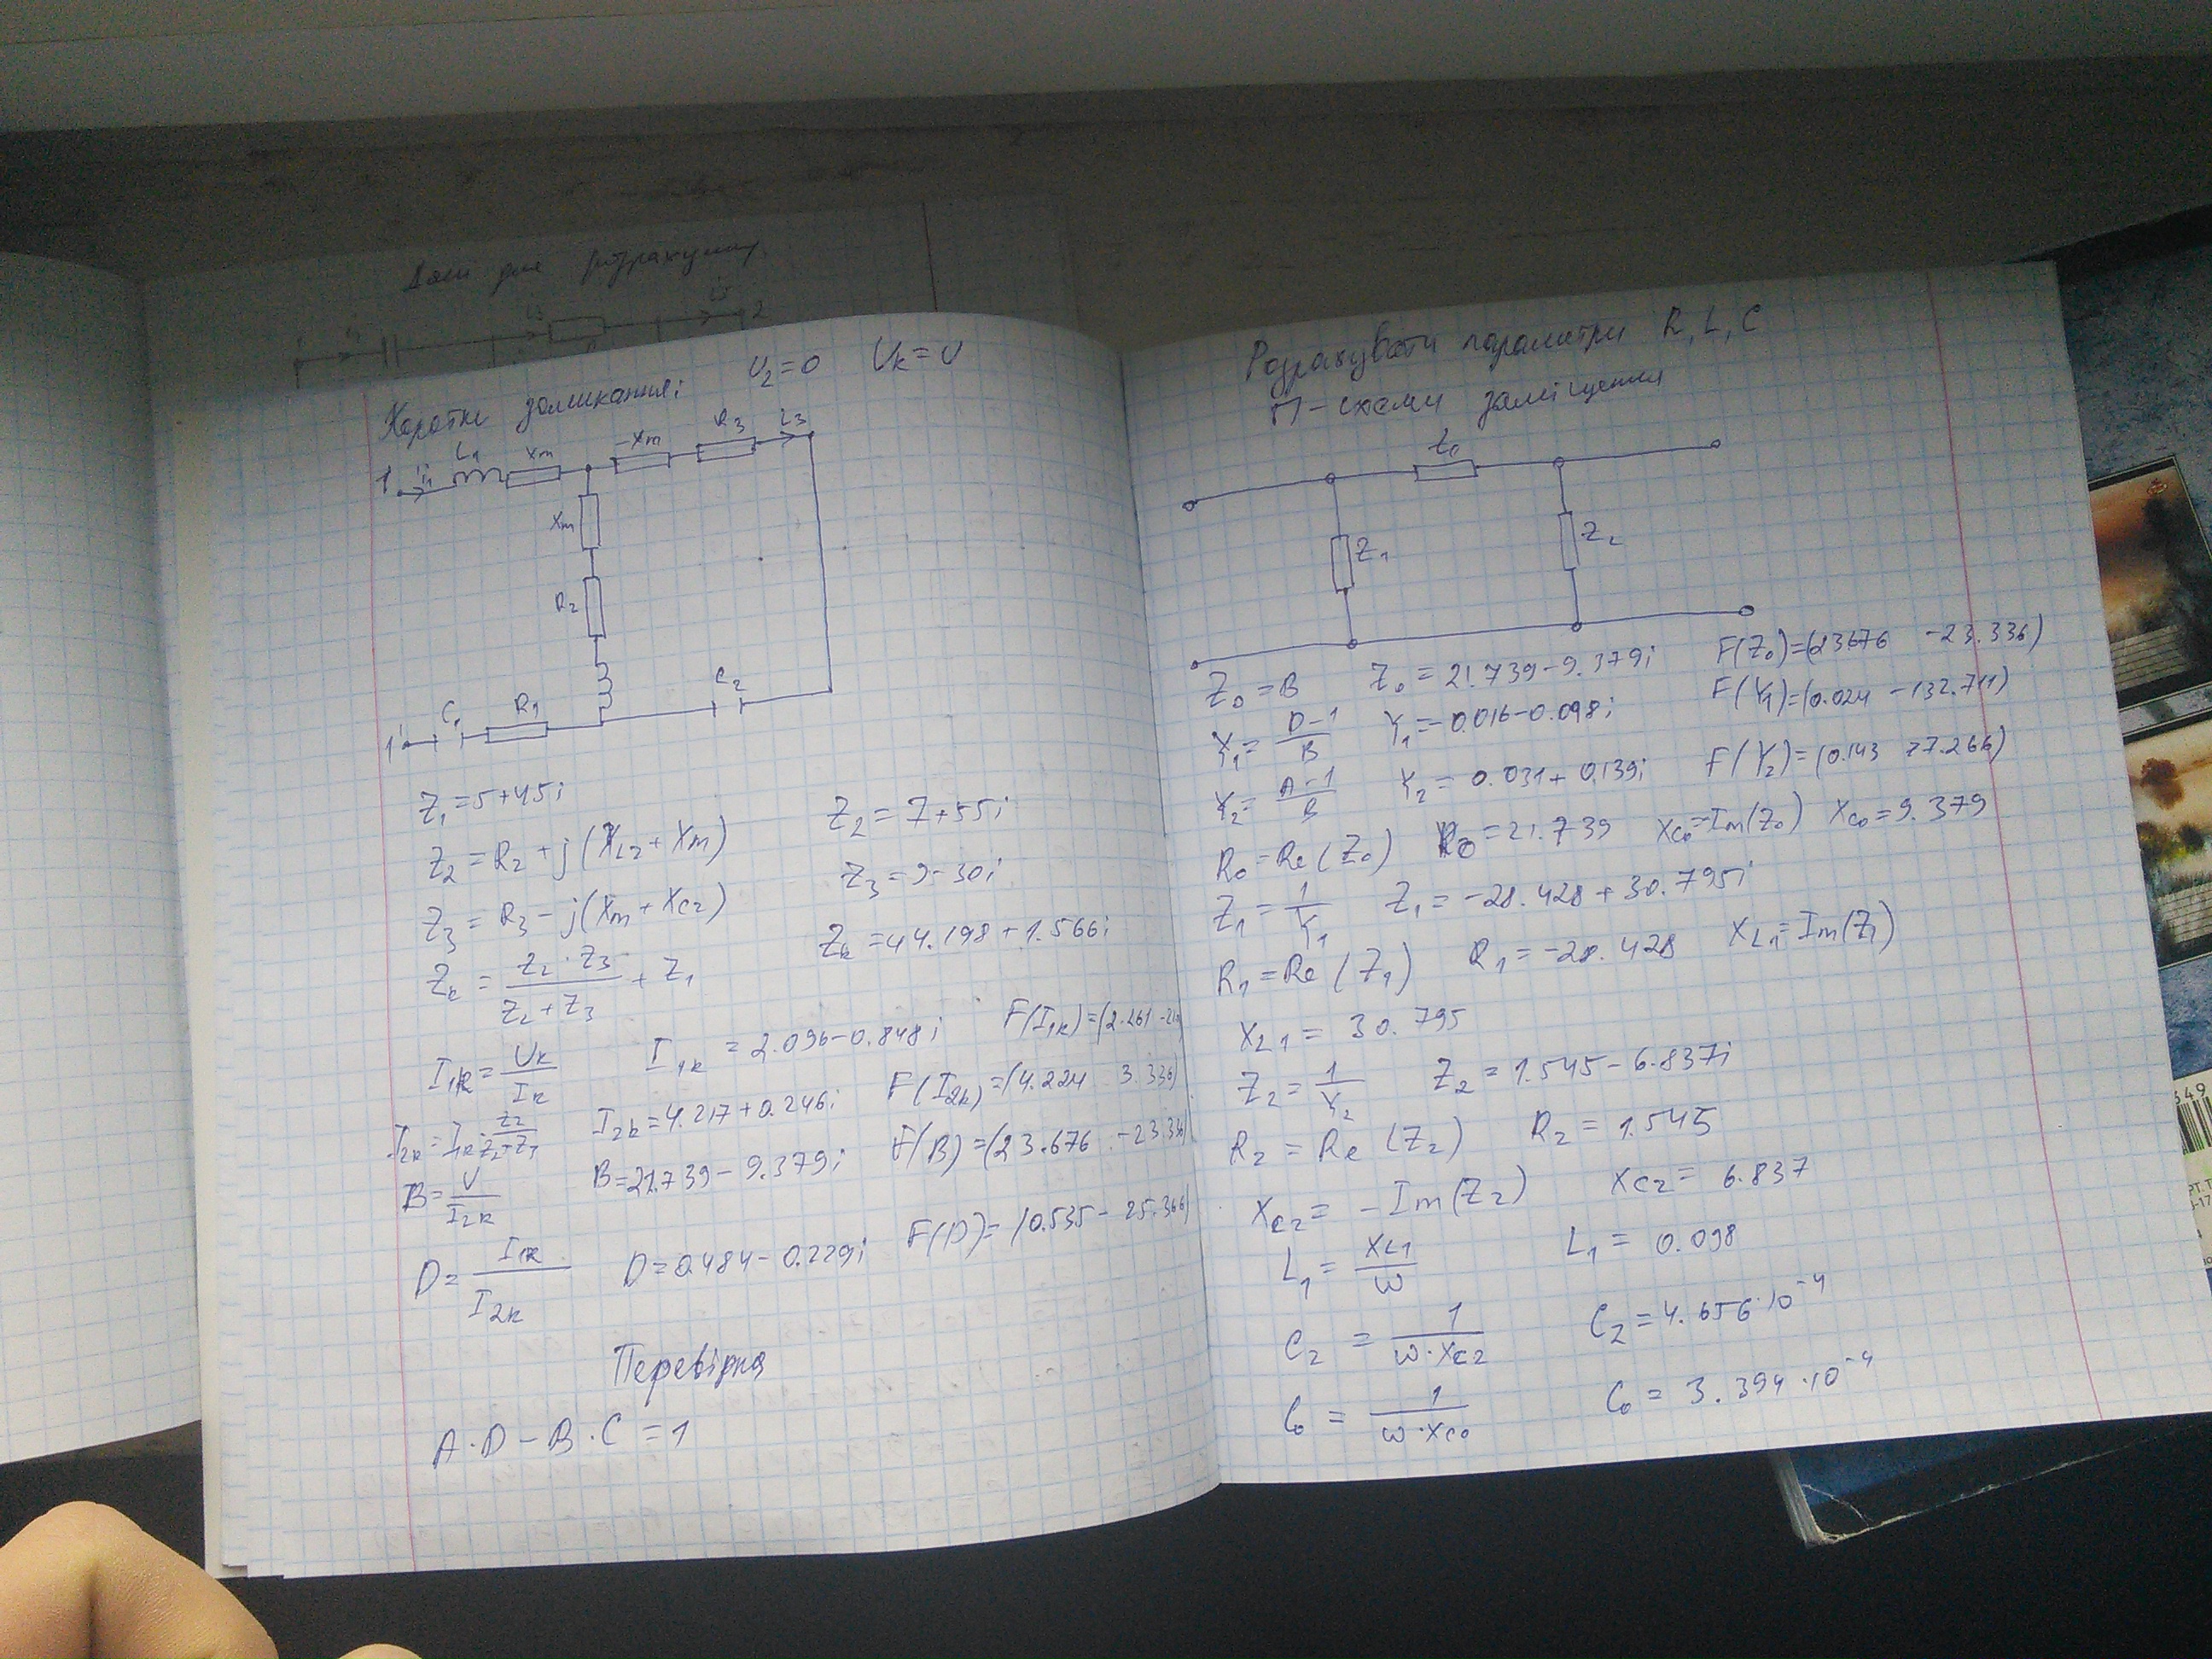 Дані для розрахунку
2
Коротке замикання: U₂=0 Uк=U
1 i₁ L₁ Xm -Xm R₃ i₃
Xm
R₂
C₂
1' C₁ R₁
Z₁=5+45i
Z₂ = R₂ + j(X_L2 + Xm) Z₂ = 7+55i
Z₃ = R₃ - j(Xm + X_C2) Z₃ = 9-30i
Zк = Z₂·Z₃/(Z₂+Z₃) + Z₁ Zк = 44.198 + 1.566i
I₁к = Uк/Iк I₁к = 2.096-0.848i F(I₁к)=(2.261
I₂к = I₁к·Z₂/(Z₂+Z₃) I₂к = 4.217+0.246i F(I₂к)=(4.224 3.336)
B = U/I₂к B=21.739-9.379i F(B)=(23.676 -23.336)
D = I₁к/I₂к D=0.484-0.229i F(D)=(0.535 - 25.366)
Перевірка
A·D-B·C=1
Розрахувати параметри R, L, C
П-схеми заміщення
Z₀
Z₁ Z₂
Z₀=B Z₀=21.739-9.379i F(Z₀)=(23676 -23.336)
Y₁=(D-1)/B Y₁=-0.016-0.098i F(Y₁)=(0.024 -132.711)
Y₂=(A-1)/B Y₂=0.031+0.139i F(Y₂)=(0.143 77.266)
R₀=Re(Z₀) R₀=21.739 X_C0=-Im(Z₀) X_C0=9.379
Z₁=1/Y₁ Z₁=-28.428+30.795i
R₁=Re(Z₁) R₁=-28.428 X_L1=Im(Z₁)
X_L1=30.795
Z₂=1/Y₂ Z₂=1.545-6.837i
R₂=Re(Z₂) R₂=1.545
X_C2=-Im(Z₂) X_C2=6.837
L₁=X_L1/ω L₁=0.098
C₂=1/(ω·X_C2) C₂=4.656·10⁻⁴
C₀=1/(ω·X_C0) C₀=3.394·10⁻⁴